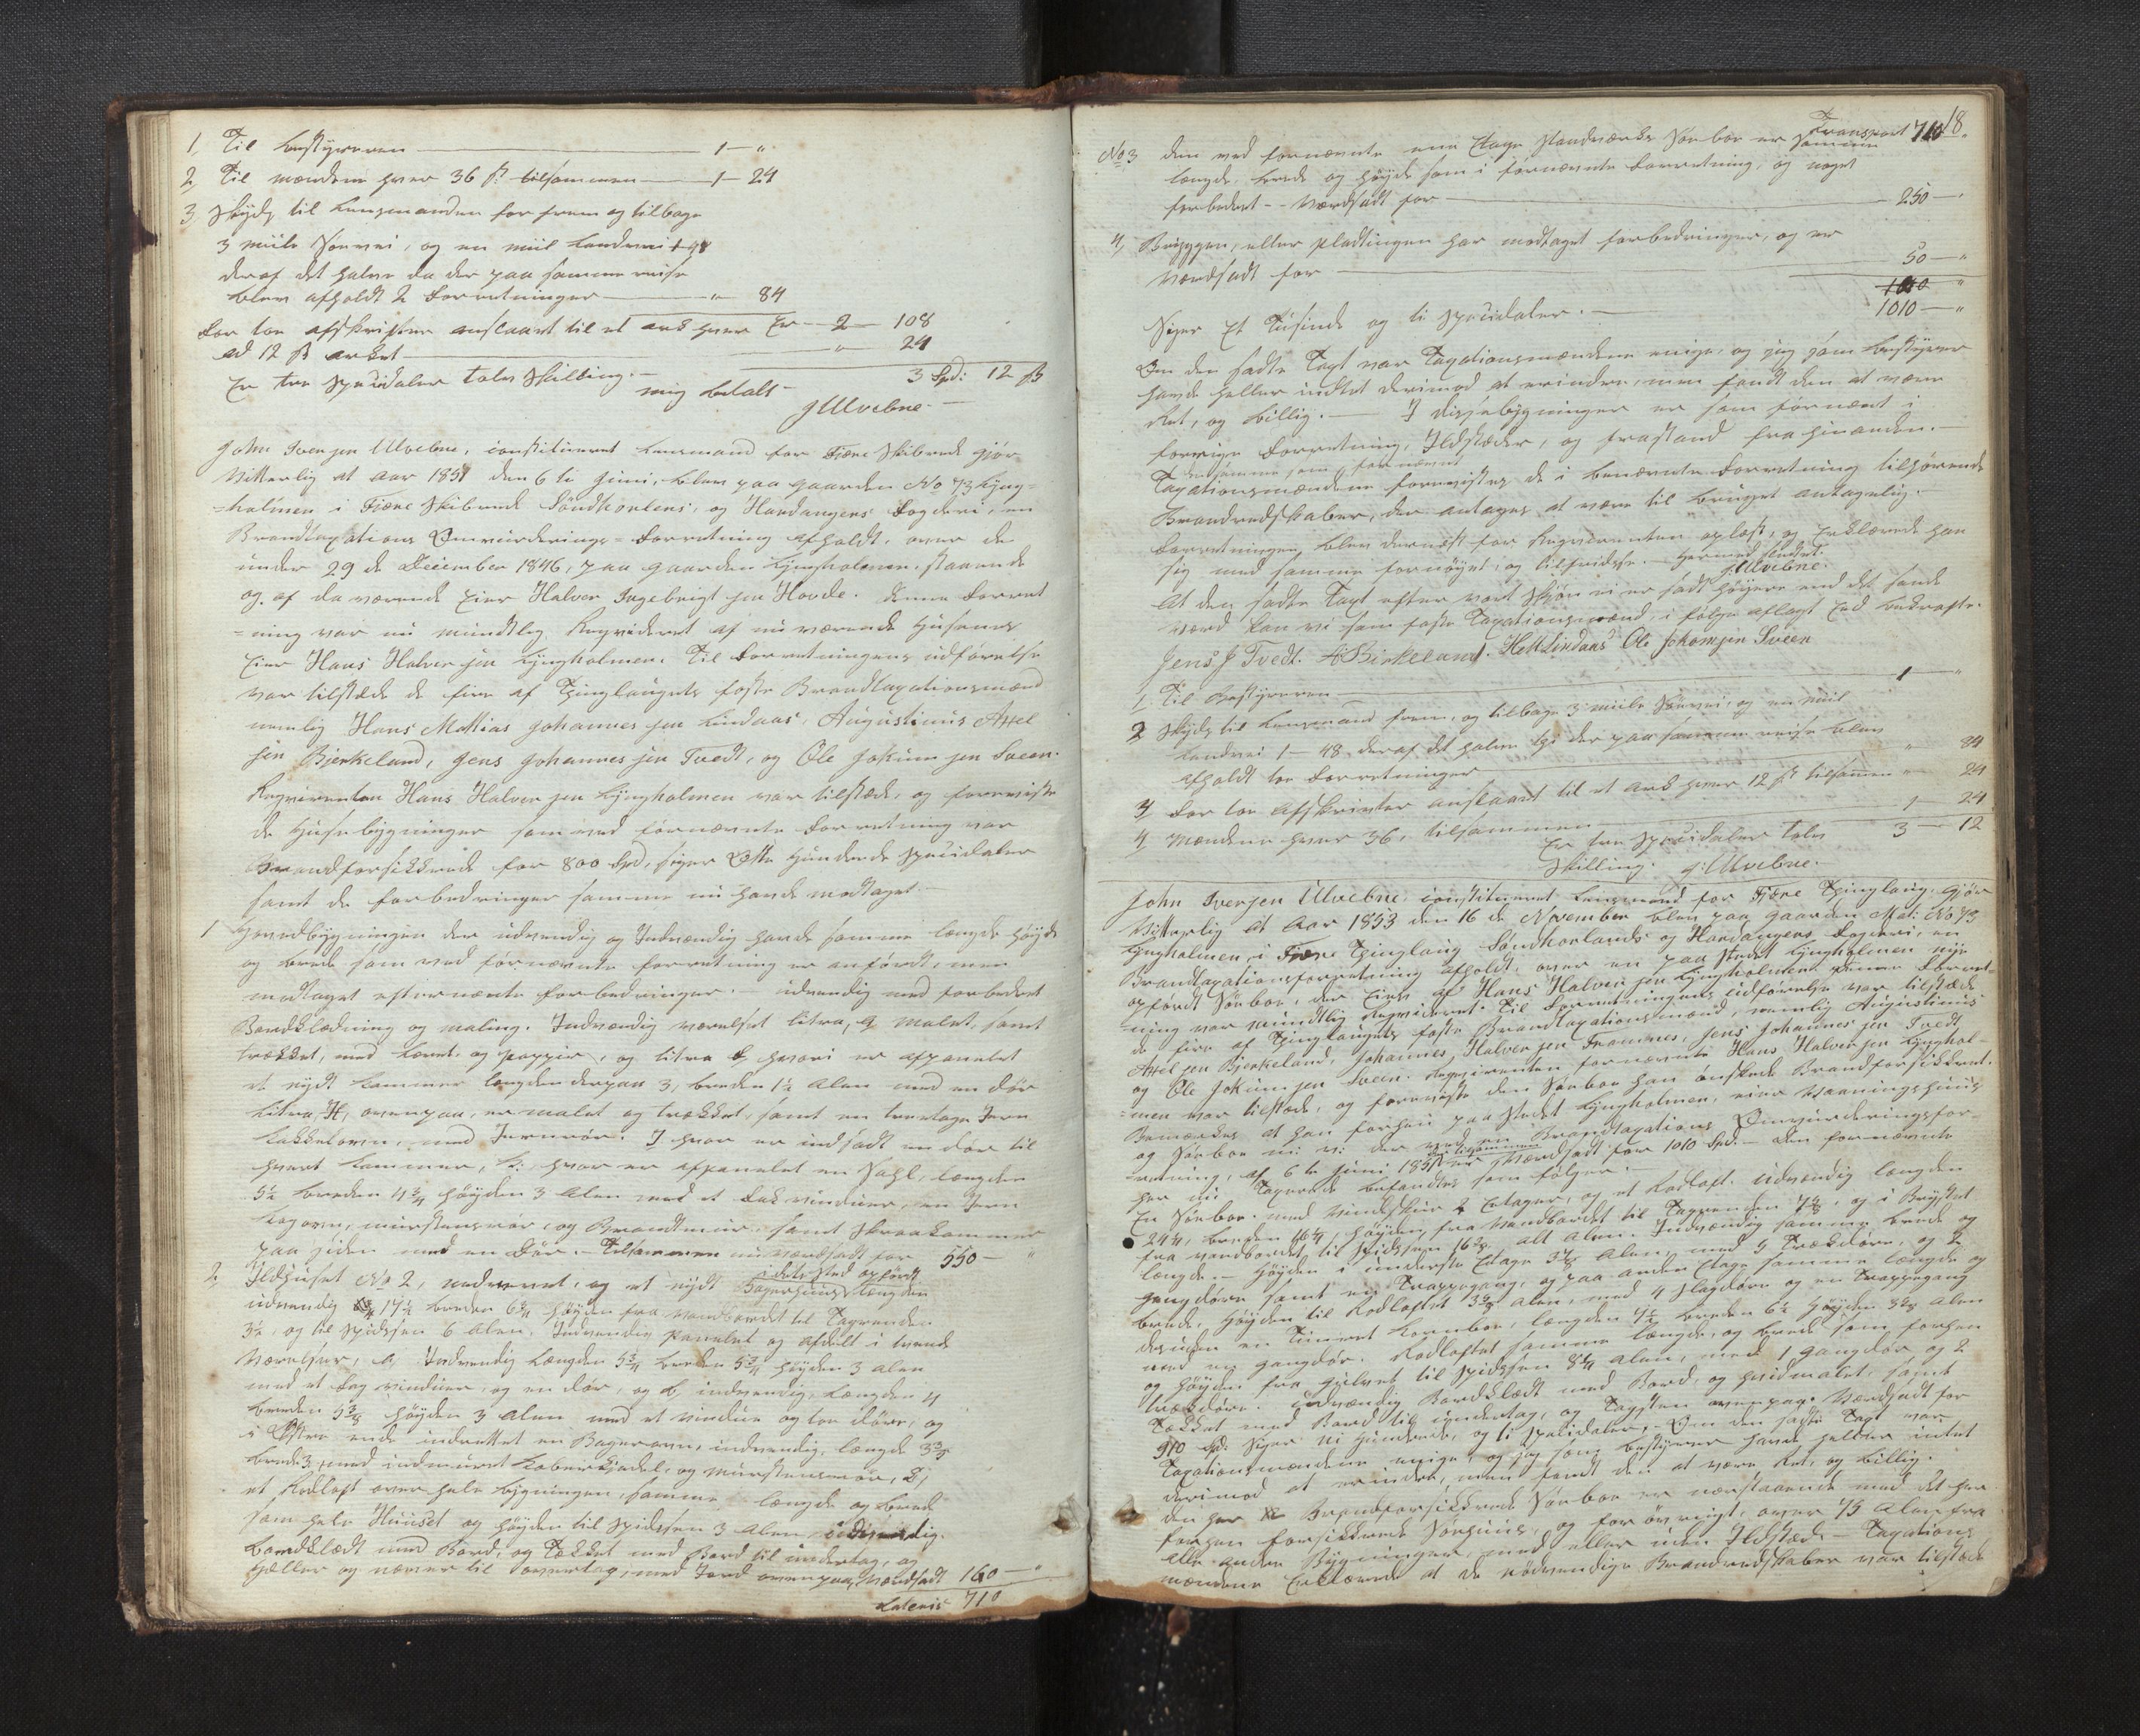 1, Til bestyreren — 1 — "
2, Til mændene hver 36 s. tilsammen — 1 — 24
3, Skyds til Lensmanden for frem og tilbage
3 miile Søevei, og en miil Landevei 1-48
deraf det halve da der paa samme reise
blev afholdt 2 Forretninger — " 84
For toe afskrifter anslaaet til et ark hver Er — 2 — 108
ad 12 ß arket — " 24
Er tre Speciedaler tolv Skilling. — 3 Spd: 12 ß
mig betalt
J Ulvebne.
John Iversen Ulvebne, constitueret Lensmand for Fjære Skibrede gjør
Vitterlig at Aar 1851 den 6te Juni, blev paa gaarden No 73 Lyng=
=holmen i Fjære Skibrede Søndhorlens, og Hardangers Fogderi, en
Brandtaxations Omvurderings=Forretning afholdt, over de
under 29de December 1846, paa gaarden Lyngholmen staaende
og af da værende Eier Halver Ingebrigtsen Hovde. Denne Forret
=ning var nu mundtlig Reqvireret af nu værende Husenes
Eier Hans Halversen Lyngholmen. Til Forretningens udførelse
var tilstæde de fire af Thinglaugets faste Brandtaxationsmænd
nemlig Hans Mathias Johannessen Lindaas, Augustinus Axel
sen Bjerkeland, Jens Johannessen Tvedt, og Ole Jokumsen Sveen.
Reqvirenten Hans Halversen Lyngholmen var tilstæde, og foreviste
de Huse bygninger som ved fornævnte Forretning var
Brandforsikkrede for 800 Spd, siger Otte Hundrede Speciedaler
samt de forbedringer samme nu havde modtaget —
1 Hovedbygningen der udvendig og Indvændig havde samme længde høyde
og brede som ved fornævnte forretning er anført, men
modtaget efternævnte forbedringer. udvendig med forbedret
Bordklædning og maling. Indvændig værelset litra, a malet, samt
trækket, med Lærret og pappir, og litra b hvori er afpanelet
et nydt Kammer længden derpaa 3, breden 1½ Alen med en dør
Litra, H, ovenpaa, er malet og trækket, samt en treetages Jern
Kakkelovn, med Jernrør. I hvor er indsadt en dør til
hvert Kammer, K: hvor er afpanelet en Sahl, længden
5½ breden 4¾ høyden 3 Alen med et Fak vinduer, en Jern
Kogovn, murstensrør, og Brandtmur. samt Skraakammer
paa siden med en Dør. — Tilsammen nu værdsadt for 550 — "
2, Ildhuset No 2, nedrevet, og et nydt i dets sted opført Bagerhuus længden
udvendig 17½ breden 6¾ høyden fra vandbordet til Tagrenden
3½, og til Spidssen 6 Alen. Indvendig Panelet og afdelt i tvende
Værelser, a, Indvendig længden 5¾ breden 5¾ høyden 3 Alen
med et fag vinduer, og en dør, og b, indvendig længden 4
breden 5⅜ høyden 3 Alen med et vindue og toe døre, og
i Østre ende indrettet en Bagerovn, indvendig, længde 3⅜
brede 3, med indmuret Kaberkjedel, og murstensrør, 2,
et Rodloft over hele bygningen, samme længde og brede
som hele Huuset og høyden til Spidssen 3 Alen, udvendig
bordklædt med Bord, og Tækket med Bord til undertag, og
Heller og næver til overtag, med Tord ovenpaa, Værdsadt 160 — "
Lateris 710
18.
Transport 710
No 3 den ved fornævnte ene Etage Standværks Søe boe er samme
længde, brede og høyde som i fornævnte Forretning, og noget
forbedret — Værdsadt for — 250 — "
4, Bryggen, eller pladtingen har modtaget forbedringer, og er
Værdsadt for — 50 — "
1010 "
Siger Et Tusinde og ti Speciedaler. — 1010 — "
Om den sadte Taxt var Taxationsmændene enige, og jeg som bestyrer
havde heller indtet derimod at erindre, men fandt den at være
Ret, og billig. — I disse bygninger er som fornævnt i
forrige Forretning, Ildstæder, og frastand fra hinanden. —
den samme som fornævnt
Taxationsmændene forevistes de i benævnte Forretning tilhørende
Brandredskaber, der antages at være til bruget antagelig.
Forretningen blev dernæst for Reqvirenten oplæst, og Erklærede han
sig med samme fornøyet, og tilfridse. — Hermed sluttet.
J. Ulvebne.
At den sadte Taxt efter vort Skjøn ei er sadt høyere end det sande
værd kan vi som faste Taxationsmænd, i følge aflagt Eed bekræfte.
Jens J Tvedt. A Birkeland. H M Lindaas Ole Johomsen Sveen
1, Til Bestyreren — 1 — "
2 Skyds til Lensmand frem, og tilbage 3 miile Søevei, og en miil
Landvei 1—48 deraf det halve thi der paa samme reise blev
afholdt toe Forretninger — " 84
3 For toe Afskrivter anslaaet til et ark hver 12 s. tilsamen " 24
4, Mændene hver 36, tilsammen — 1 — 24
Er tre Speciedaler tolv 3 — 12
Skilling. J. Ulvebne.
John Iversen Ulvebne, constitueret Lensmand for Fjære Thinglaug. Gjør
Vitterlig at Aar 1853 den 16de November blev paa gaarden Mat: No 73
Lyngholmen, i Fjære Thinglaug Søndhorlands og Hardangers Fogderi, en
Brandtaxationsforretning afholdt, over en paa stedet Lyngholmen nye
opførdt Søeboe, der Eies af Hans Halversen Lyngholmen. Denne Forret=
=ning var mundtlig Reqvireret. Til Forretningens udførelse var tilstæde
de fire af Thinglaugets faste Brandtaxationsmænd, nemlig Augustinus
Axelsen Bjerkeland, Johannes Halversen Framnes, Jens Johannessen Tvedt
og Ole Jokumsen Sveen. Reqvirenten fornævnte Hans Halversen Lynghol=
=men var tilstæde, og foreviste den Søeboe han ønskede Brandforsikkret.
Bemærkes at han forhen paa stedet Lyngholmen, eier Vaaningshuus
og Søeboe m: v: der ved en Brandtaxations Omvurderingsfor=
=retning, af 6te Juni 1851 er tilsammen Værdsadt for 1010 Spd. — den fornævnte
her nu Taxerede befandtes som følger.
En Søeboe. med Vindskur 2 Etager, og et Rodloft. udvændig længden
24¼, breden 16¼, høyden fra Vandbordet til Tagrenden 7⅝, og i Brystet
fra vandbordet til Spidssen 16⅜ alt Alen. Indvændig samme brede og
længde. — Høyden i underste Etage 3⅝ Alen, med 5 Trækdøre, og 2
gangdøre samt en Trappegang, og paa anden Etage samme længde og
brede, høyden til Rodloftet 3⅜ Alen, med 4 slagdøre og en Trappegang
desuden en Timret Kornboe, længden 4½ breden 6½ høyden 3⅜ Alen
med en gangdør. Rodloftet samme længde, og brede som forhen
og høyden fra gulvet til Spidssen 8¼ Alen, med 1 gangdør og 2
Trækdøre. udvændig Bordklædt med Bord, og hvidmalet, samt
Tækket med Bord til undertag, og Tagsten ovenpaa. Værdsadt for
910 Spd. Siger Ni Hundrede, og ti Speciedaler. Om den sadte Taxt var
Taxationsmændene enige, og jeg som bestyrer havde heller intet
derimod at erindre, men fandt den at være Ret, og billig.
den her Brandforsikkrede Søeboe er nærstaaende med det her
forhen forsikkrede Søehuus, og forøvrigt, over 45 Alen fra
alle andre Bygninger, med eller uden Ildstæd. — Taxations
mændene Erklærede at de nødvendige Brandredskaber var tilstæde